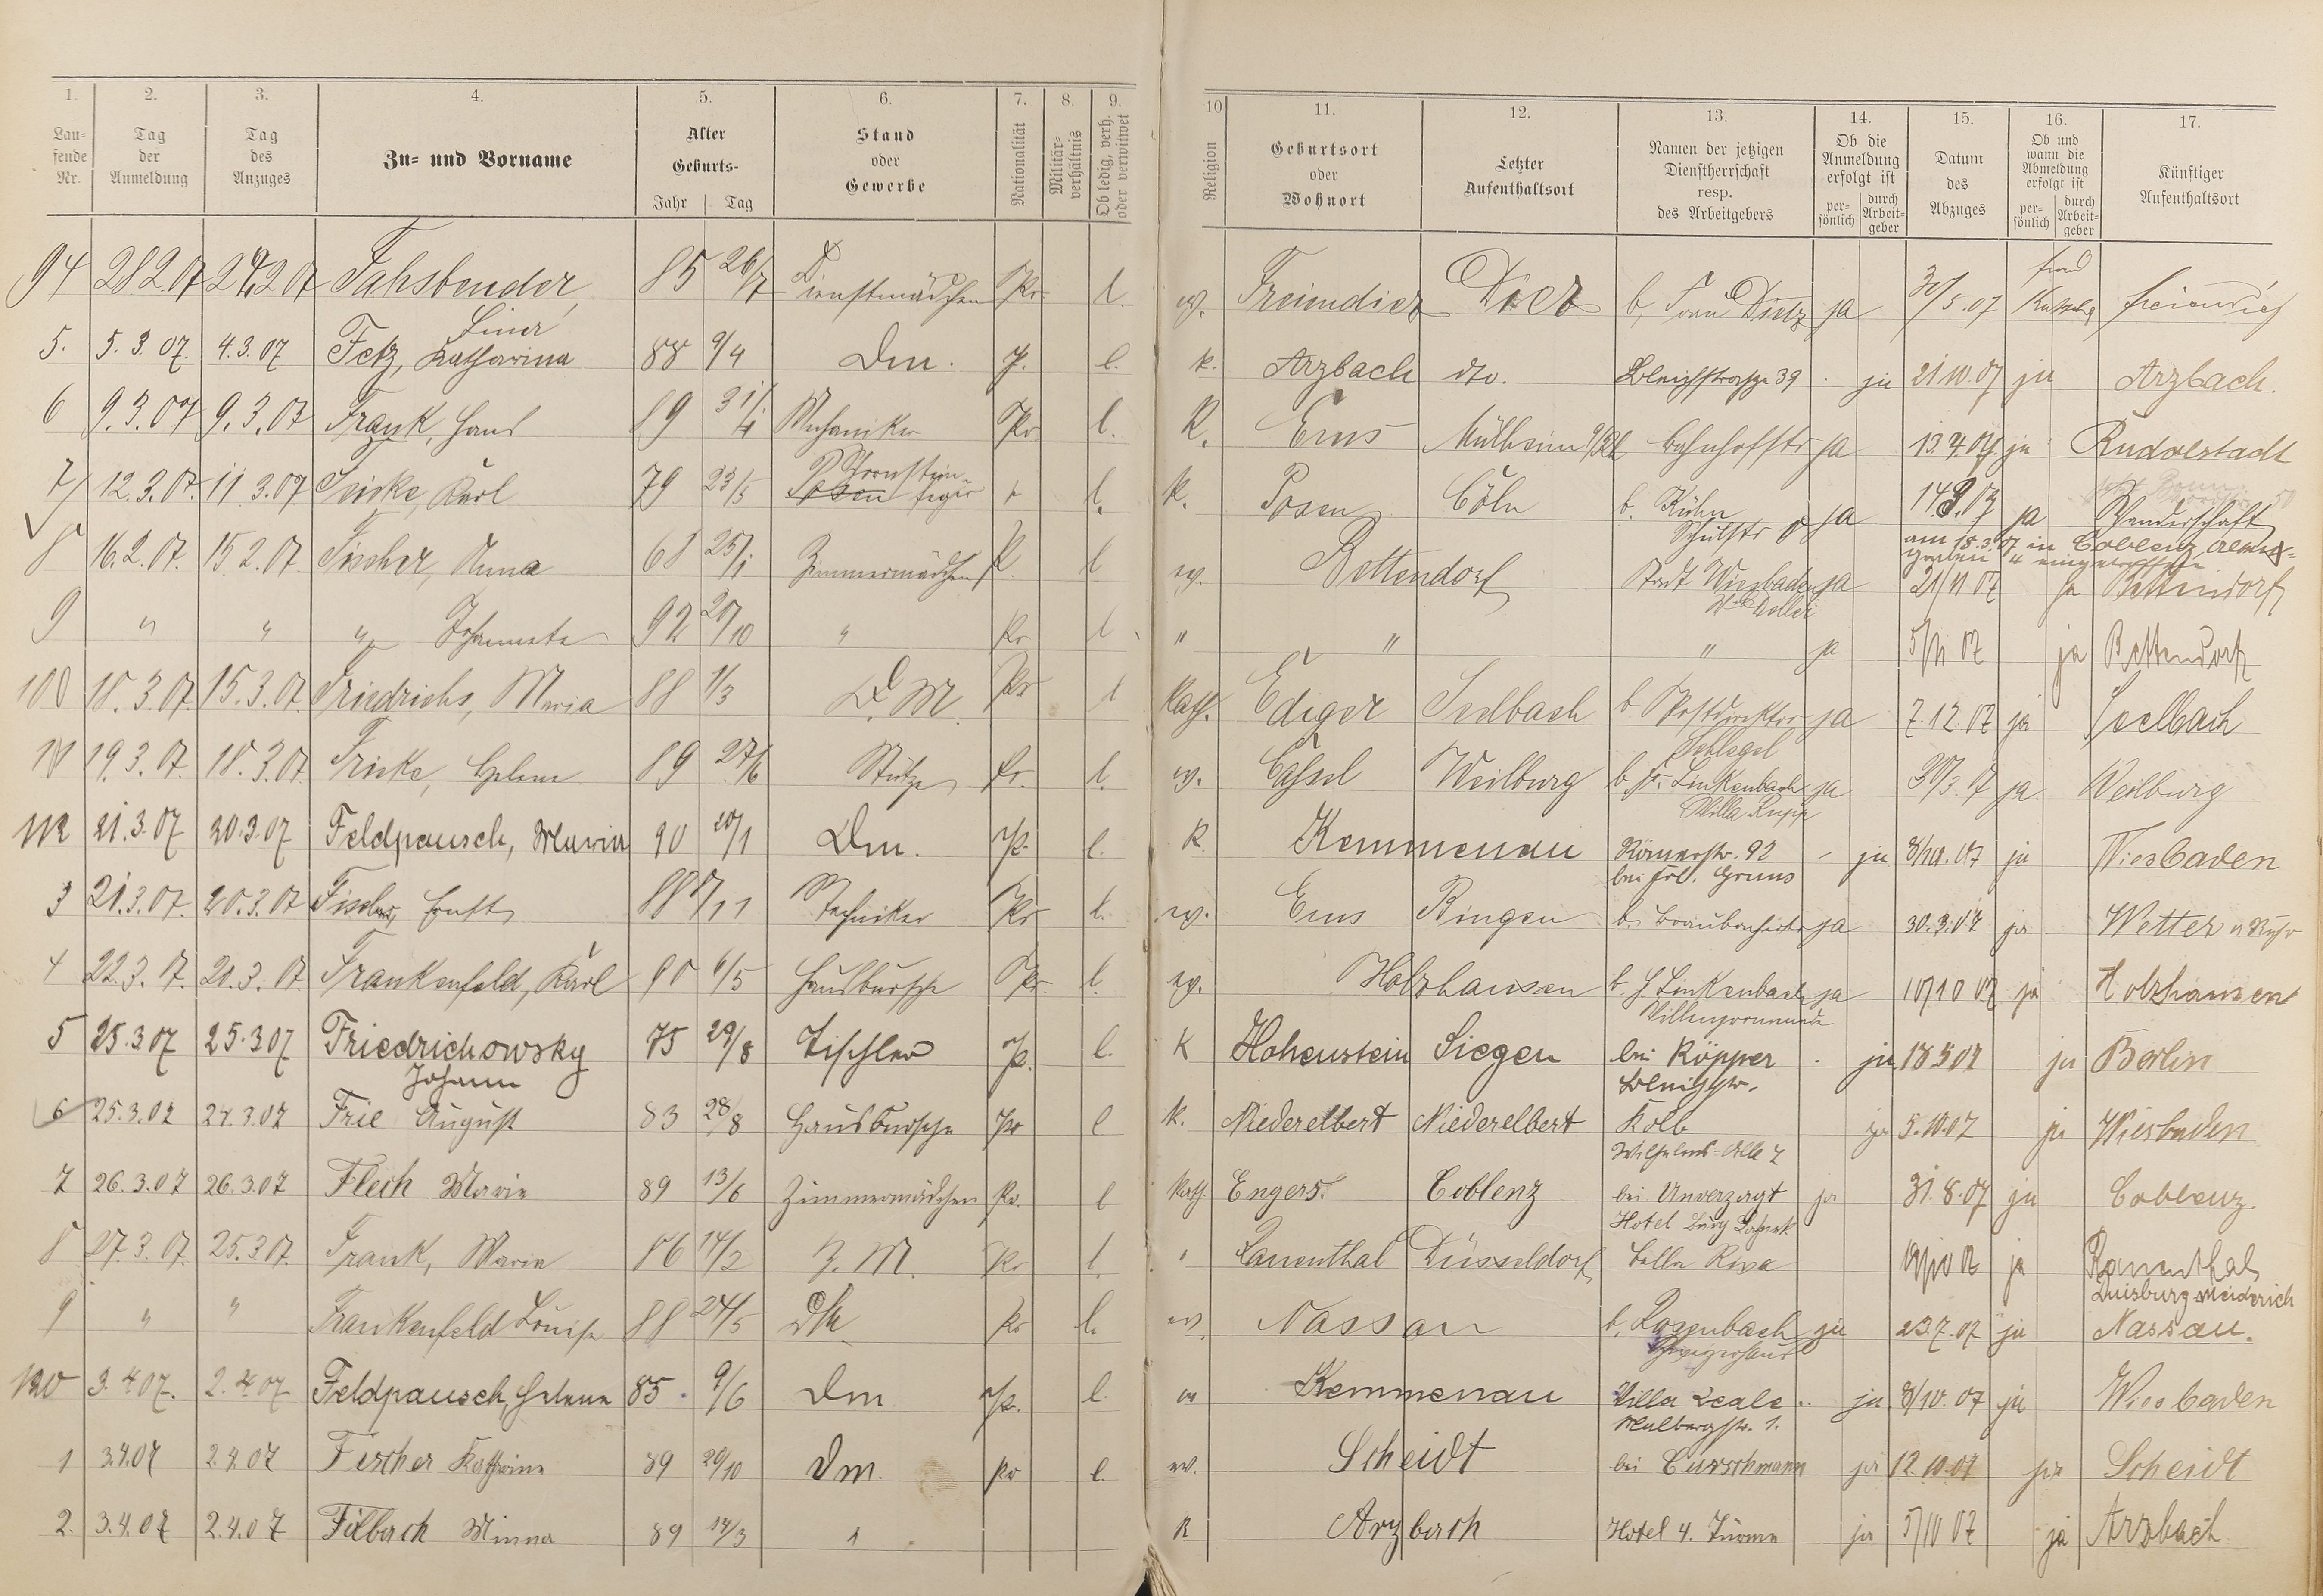 1. 2. 3. 4. 5. 6. 7. 8. 9. 10 11. 12. 13. 14. 15. 16. 17.
Lau-
fende
Nr.
Tag
der
Anmeldung
Tag
des
Anzuges
Zu- und Vorname
Alter
Geburts-
Jahr Tag
Stand
oder
Gewerbe
Nationalität
Militär-
verhältnis
Ob ledig, verh.
oder verwitwet
Religion
Geburtsort
oder
Wohnort
Letzter
Aufenthaltsort
Namen der jetzigen
Dienstherrschaft
resp.
des Arbeitgebers
Ob die
Anmeldung
erfolgt ist
per-
sönlich
durch
Arbeit-
geber
Datum
des
Abzuges
Ob und
wann die
Abmeldung
erfolgt ist
per-
sönlich
durch
Arbeit-
geber
Künftiger
Aufenthaltsort
94 28.2.07 27.2.07 Fahsbender, 85 26/7 Dienstmädchen Pr. l. ev. Freiendiez Diez b. Frau Dietz ja 30/5.07 freiendiez
Lina
5. 5.3.07. 4.3.07 Fetz, Katharina 88 9/4 Dm. P. l. k. Arzbach dto. Bleichstrasse 39 ja 21.10.07 ja Arzbach.
6 9.3.07 9.3.07 Frank, Hans 89 31/ Mechaniker Pr l. K. Ems Mülheim a/Rh Bahnhofstr ja 13.4.07. ja Rudolstadt
7 12.3.07. 11.3.07 Karl 79 23/5 Posen l. k. Posen Cöln b. Kühn ja 14.3.07 ja Wanderschaft
Schornstein-
feger
Schulstr 8
am 18.3.07 in Coblenz
8 16.2.07. 15.2.07. Fischer, Anna 68 25/1 Zimmermädchen P. l ev. Bettendorf Stadt Wiesbaden ja 21/11 07 ja Bettendorf
9 " " " Johannete 92 20/10 " Pr l " " " ja 5/11 07 ja Bettendorf
100 18.3.07. 15.3.07. Friedrichs, Maria 88 1/3 D.M. Pr l Kath. Ediger Seelbach b. Postdirektor ja 7.12.07 ja Seelbach
Schlegel
101 19.3.07. 18.3.07. Fricke, Helene 89 27/6 Stütze Pr. l. ev. Cassel Weilburg b. Fr. Linkenbach ja 30/3.07 ja Weilburg
Villa Rupp
102 21.3.07 20.3.07 Feldpausch, Maria 90 20/1 Dm. P. l. K. Kemmenau Römerstr. 92 - ja 8/10.07 ja Wiesbaden
bei Frl. Gruns
3 21.3.07. 20.3.07 Fischer, Ernst 88 /11 Techniker Pr l. ev. Ems Bingen ja 30.3.07 ja Wetter a Ruhr
4 22.3.07. 20.3.07. Frankenfeld, Karl 90 6/5 Hausbursche Pr. l. ev. Holzhausen b. H. Linkenbach ja 10/10 07 ja Holzhausen
Villenpromenade
5 25.3.07 25.3.07 Friedrichowsky 75 29/8 Tischler P. l. K Hohenstein Siegen bei Köpper ja 18.5.07 ja Berlin
Johann
Bleichstr.
6 25.3.07 24.3.07 Frie August 83 28/8 Hausbursche Pr l k. Niederelbert Niederelbert Kolb ja 5.10.07 ja Wiesbaden
Wilhelms-Alle 7
7 26.3.07 26.3.07 Flech Maria 89 13/6 Zimmermädchen Pr. l Kath. Engers. Coblenz bei Unverzagt ja 31.8.07 ja Coblenz.
Hotel Burg Lahneck
8 27.3.07. 25.3.07. Frank, Maria 86 14/2 Z.M. Pr l. " Rauenthal Düsseldorf Bella Riva 19/10 07 ja Rauenthal
Duisburg Meiderich
9 " " Frankenfeld Louise 88 24/5 DM Pr l. ev. Nassau b. Rosenbach ja 23.7.07 ja Nassau.
120 3.4.07. 2.4.07 Feldpausch, Helene 85 9/6 Dm P. l. Kemmenau Villa Beale ja 8/10.07 ja Wiesbaden
Malbergstr. 1.
1 3.4.07 2.4.07 Fischer Katharina 89 20/10 Dm. Pr l ev. Scheidt bei Curschmann ja 12.10.07 ja Scheidt
2. 3.4.07 2.4.07 Filbach Minna 89 14/3 " K Arzbach Hotel 4. Türme ja 5/10 07 ja Arzbach